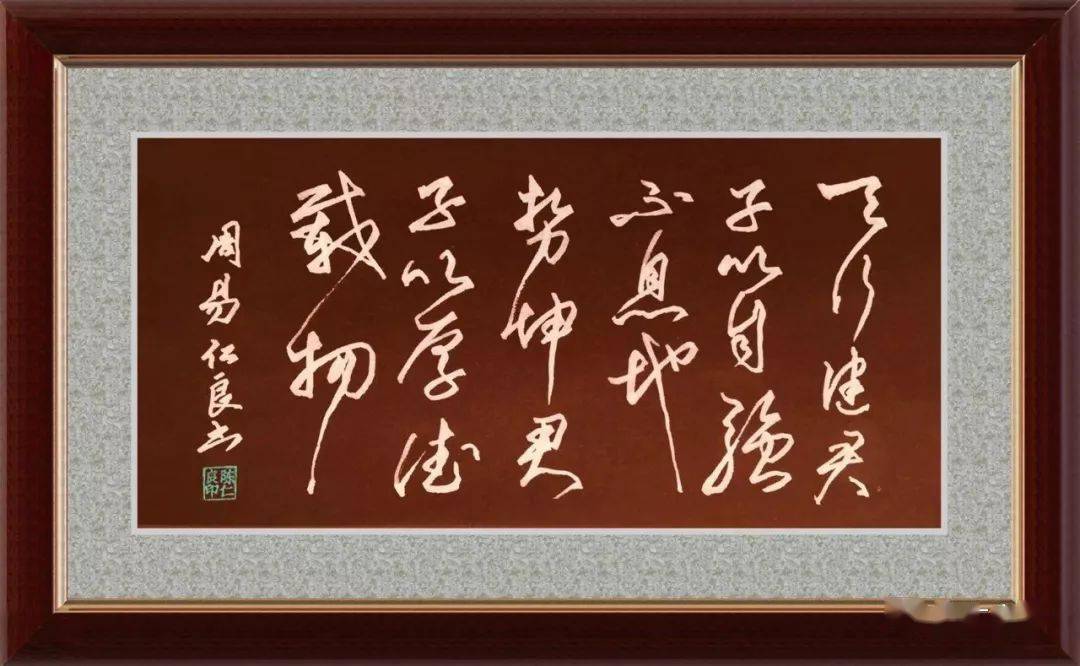 天行健君
子以自强
不息地
势坤君
子以厚德
载物
周易仁良书
陈仁
良印